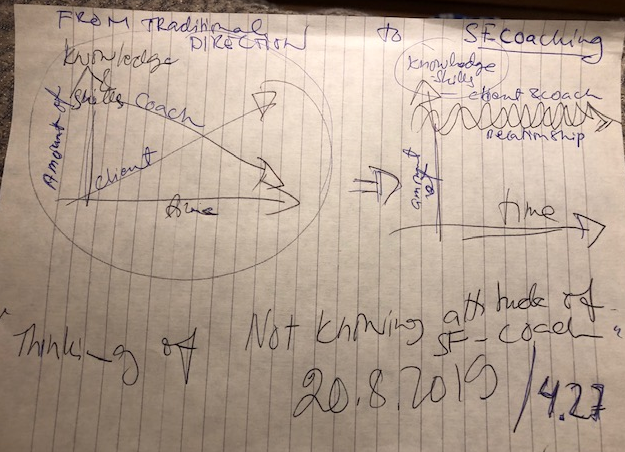 FROM TRADITIONAL DIRECTION
to
SF COACHING
Knowledge & Skills
Amount of
Coach
client
time
Knowledge skills
client & coach
Relationship
amount of
time
"Thinking of Not Knowing attitude of SF-coach"
20.8.2019 / 4.27